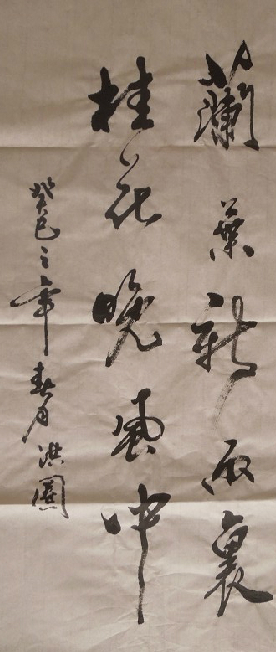 蘭葉新雨裏
桂花晚風中
癸巳之年春月洪圖